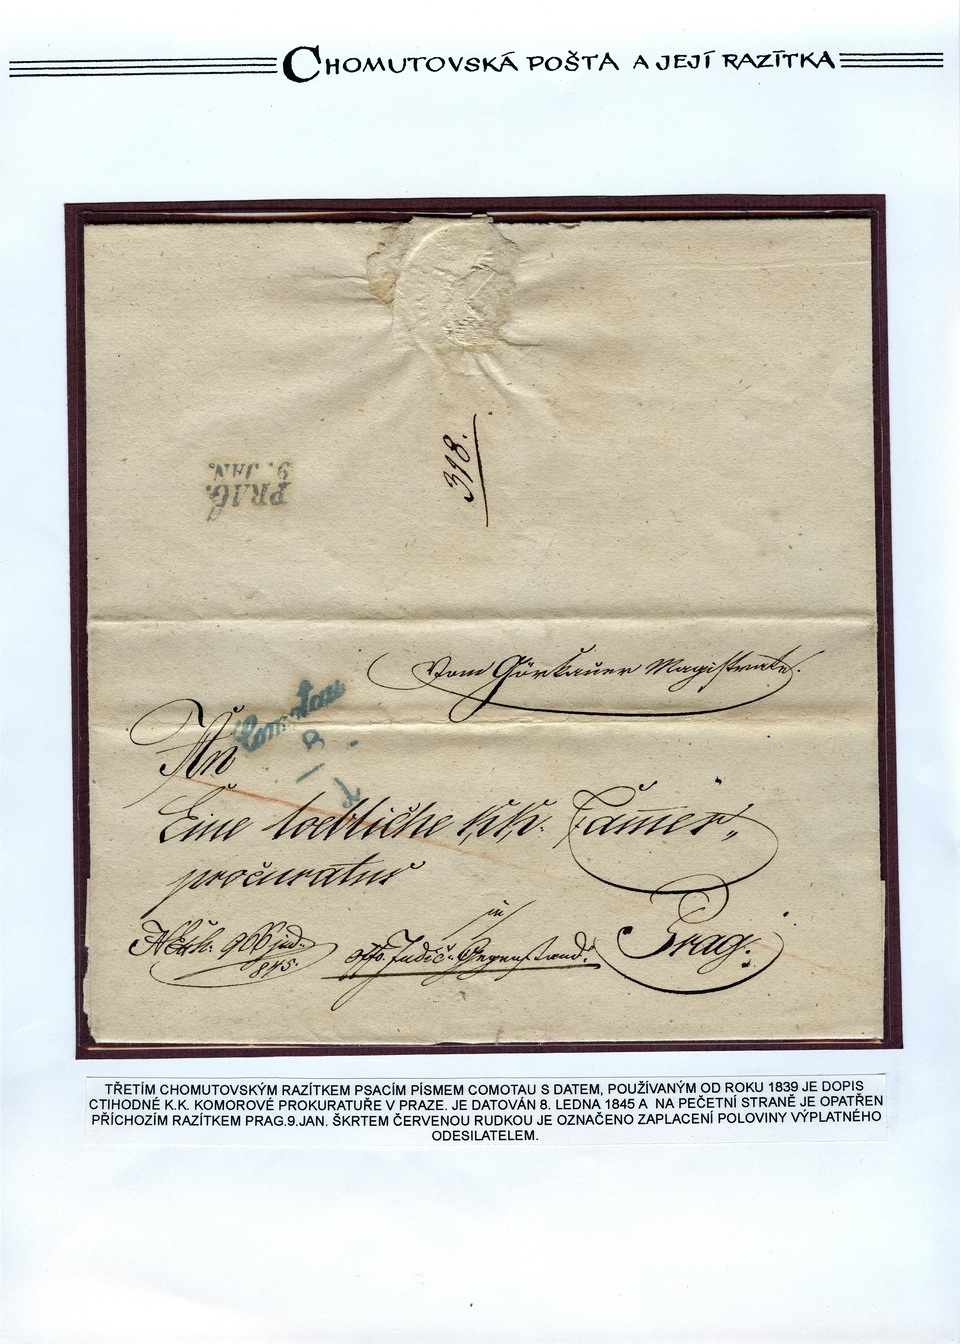 CHOMUTOVSKÁ POŠTA A JEJÍ RAZÍTKA
398.
PRAG.
9. JAN.
Vom Görkauer Magistrate.
Comotau
8
1
An
Eine loebliche k.k. Cam̅er„
procuratur
in
Prag.
966 jud.
845.
offo. Judic. Gegenstand.
TŘETÍM CHOMUTOVSKÝM RAZÍTKEM PSACÍM PÍSMEM COMOTAU S DATEM, POUŽÍVANÝM OD ROKU 1839 JE DOPIS
CTIHODNÉ K.K. KOMOROVÉ PROKURATUŘE V PRAZE. JE DATOVÁN 8. LEDNA 1845 A NA PEČETNÍ STRANĚ JE OPATŘEN
PŘÍCHOZÍM RAZÍTKEM PRAG.9.JAN. ŠKRTEM ČERVENOU RUDKOU JE OZNAČENO ZAPLACENÍ POLOVINY VÝPLATNÉHO
ODESILATELEM.